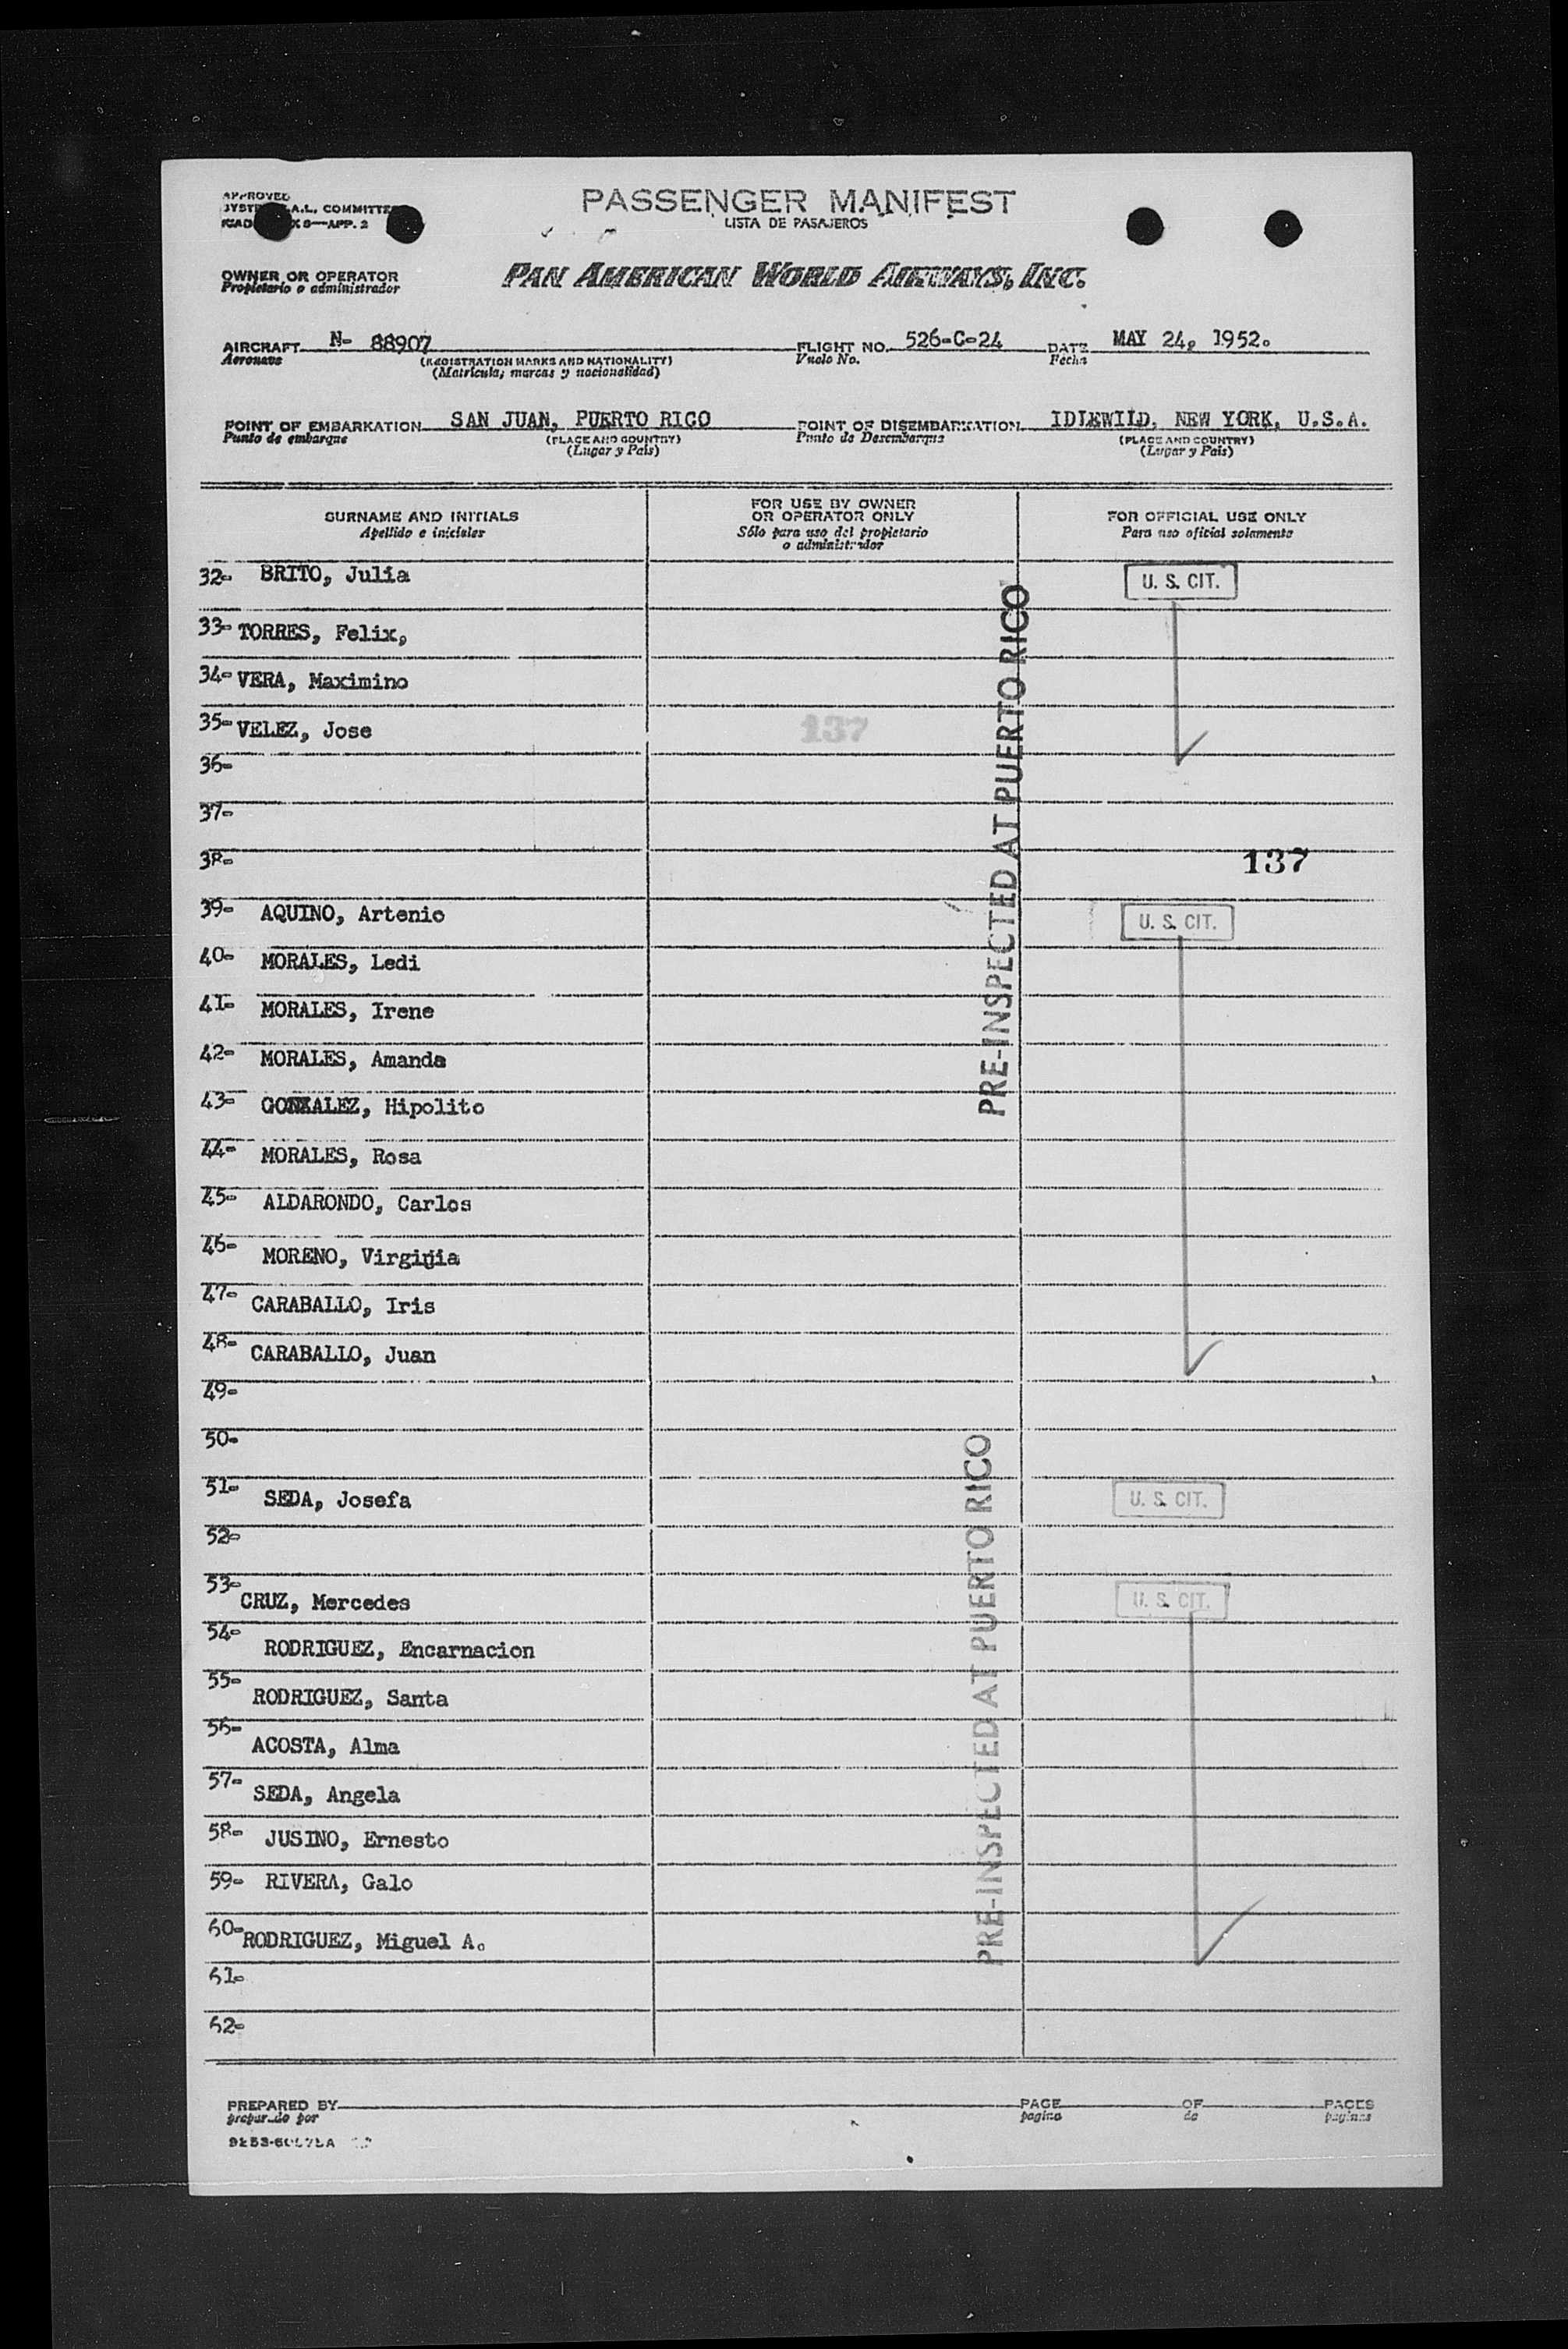 APPROVED
SYSTE A.L. COMMITTE
ICAO X 9—APP. 2
PASSENGER MANIFEST
LISTA DE PASAJEROS
OWNER OR OPERATOR
Propietario o administrador
PAN AMERICAN WORLD AIRWAYS, INC.
AIRCRAFT N- 88907
Aeronave
(REGISTRATION MARKS AND NATIONALITY)
(Matrícula, marcas y nacionalidad)
FLIGHT NO. 526-C-24
Vuelo No.
DATE MAY 24, 1952.
Fecha
POINT OF EMBARKATION SAN JUAN, PUERTO RICO
Punto de embarque
(PLACE AND COUNTRY)
(Lugar y País)
POINT OF DISEMBARKATION IDLEWILD, NEW YORK, U.S.A.
Punto de Desembarque
(PLACE AND COUNTRY)
(Lugar y País)
SURNAME AND INITIALS
Apellido e iniciales
FOR USE BY OWNER
OR OPERATOR ONLY
Sólo para uso del propietario
o administrador
FOR OFFICIAL USE ONLY
Para uso oficial solamente
32- BRITO, Julia
U. S. CIT.
33- TORRES, Felix,
34- VERA, Maximino
35- VELEZ, Jose
137
36-
37-
38-
137
PRE-INSPECTED AT PUERTO RICO
39- AQUINO, Artenio
U. S. CIT.
40- MORALES, Ledi
41- MORALES, Irene
42- MORALES, Amanda
43- GONZALEZ, Hipolito
44- MORALES, Rosa
45- ALDARONDO, Carlos
46- MORENO, Virginia
47- CARABALLO, Iris
48- CARABALLO, Juan
49-
50-
51- SEDA, Josefa
U. S. CIT.
52-
53- CRUZ, Mercedes
U. S. CIT.
54- RODRIGUEZ, Encarnacion
55- RODRIGUEZ, Santa
56- ACOSTA, Alma
57- SEDA, Angela
58- JUSINO, Ernesto
59- RIVERA, Galo
60- RODRIGUEZ, Miguel A.
61-
62-
PRE-INSPECTED AT PUERTO RICO
PREPARED BY
preparado por
PAGE OF PAGES
pagina de paginas